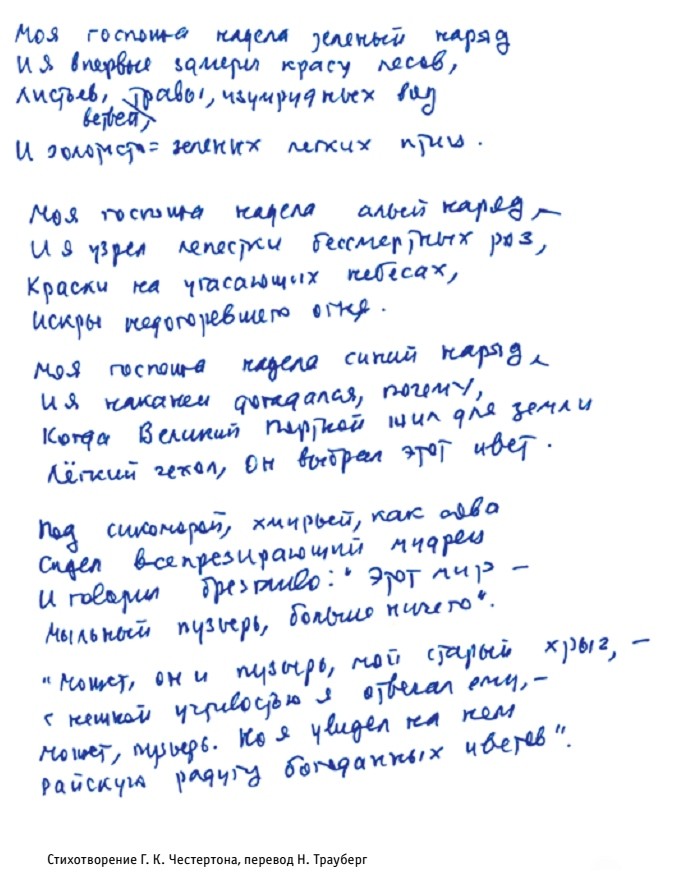 Моя госпожа надела зеленый наряд
И я впервые замерил красу лесов,
Листьев, травы, изумрудных вод
ветвей,
И золотисто=зеленых легких птиц.
Моя госпожа надела алый наряд, –
И я узрел лепестки бессмертных роз,
Краски на угасающих небесах,
Искры недогоревшего огня.
Моя госпожа надела синий наряд,
И я наконец догадался, почему,
Когда Великий Портной шил для земли
Лёгкий чехол, Он выбрал этот цвет.
Под сикоморой, хмурый, как сова
Сидел всепрезирающий мудрец
И говорил брезгливо: "Этот мир –
Мыльный пузырь, больше ничего".
"Может, он и пузырь, мой старый хрыч, –
С нежной учтивостью я отвечал ему, –
Может, пузырь. Но я увидел на нем
Райскую радугу богоданных цветов".
Стихотворение Г. К. Честертона, перевод Н. Трауберг